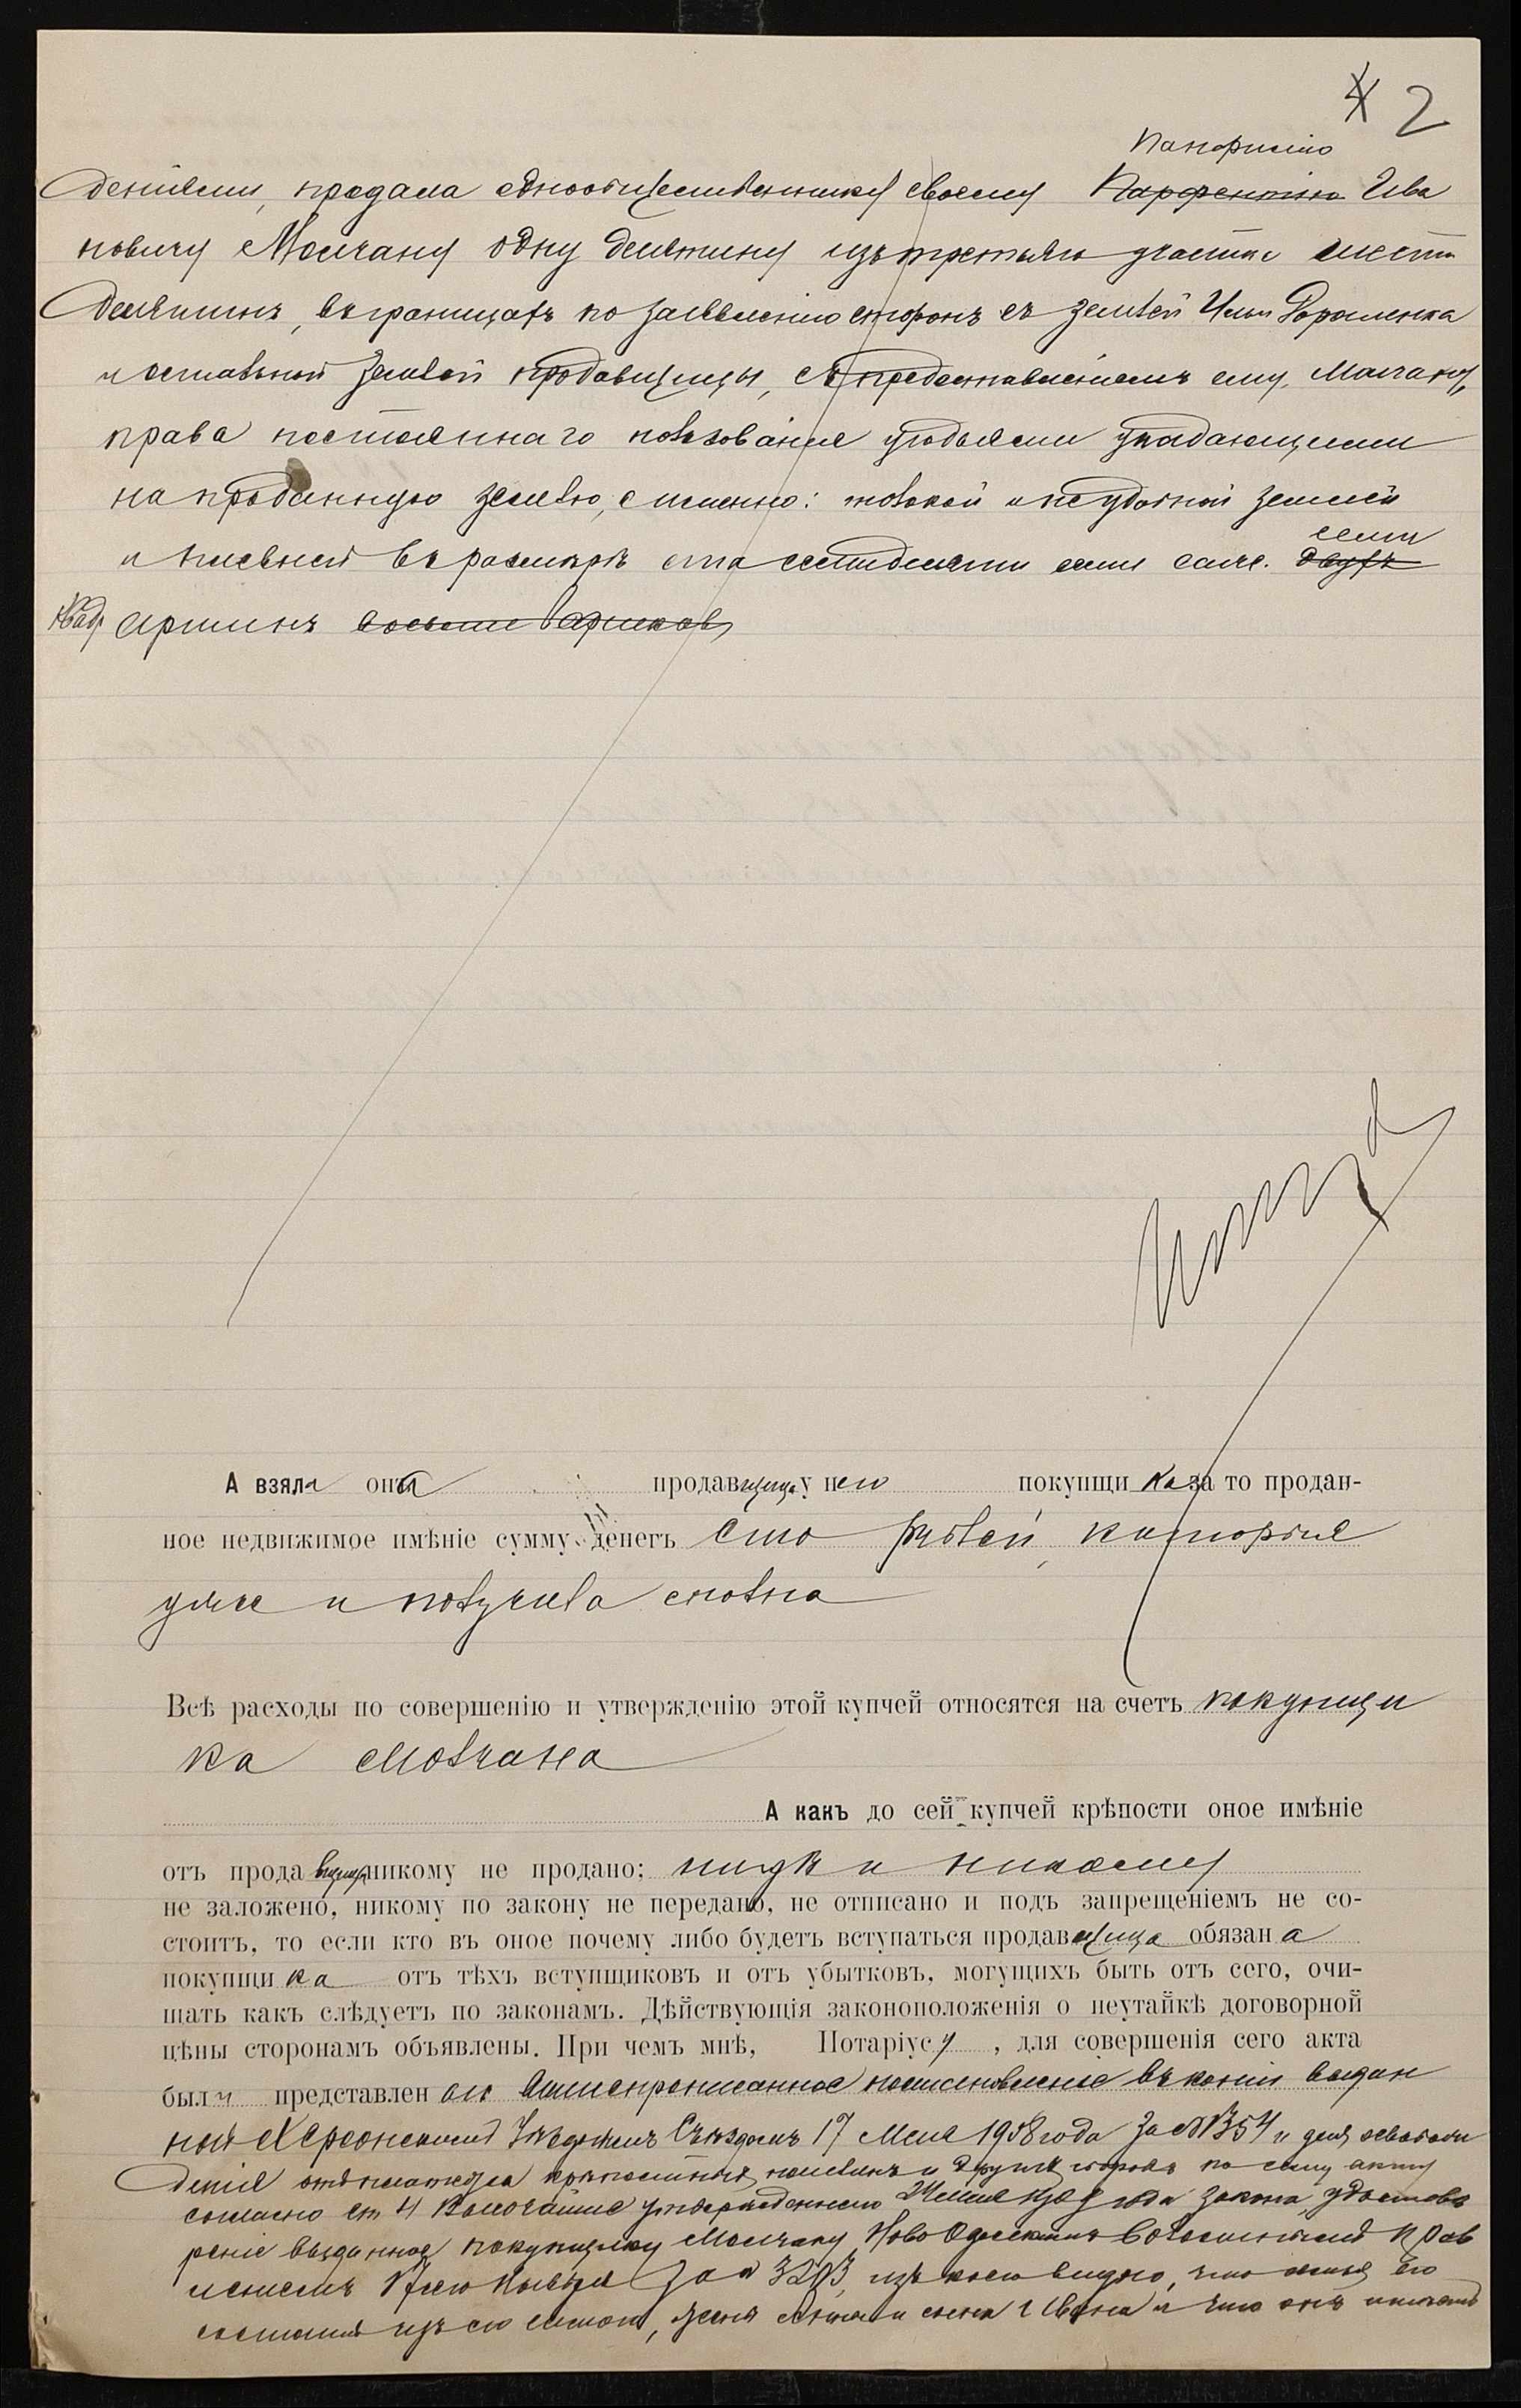 4 2
Панфилію
деніями, продала однообщественнику своему Парфентію Ива
новичу Молчану одну десятину изъ третьяго участка шести
десятинъ, въ границахъ по заявленію сторонъ съ землей Ильи
и остальной землей продавщицы, съ предоставленіемъ ему, Молчану,
права постояннаго пользованія угодьями упадающими
на проданную землю, а именно: толокой и неудобной землей
семи
и плавней въ размѣрѣ ста семидесяти саж. двухъ
квадр аршинъ восьми вершковъ
А взяла она продавщица у него покупщика за то продан-
ное недвижимое имѣніе сумму денегъ сто рублей, которые
уже и получила сполна
Всѣ расходы по совершенію и утвержденію этой купчей относятся на счетъ покупщи
ка Молчана
А какъ до сей купчей крѣпости оное имѣніе
отъ продавщицы никому не продано; нигдѣ и никому
не заложено, никому по закону не передано, не отписано и подъ запрещеніемъ не со-
стоитъ, то если кто въ оное почему либо будетъ вступаться продавщица обязана
покупщика отъ тѣхъ вступщиковъ и отъ убытковъ, могущихъ быть отъ сего, очи-
щать какъ слѣдуетъ по законамъ. Дѣйствующія законоположенія о неутайкѣ договорной
цѣны сторонамъ объявлены. При чемъ мнѣ, Нотаріусу, для совершенія сего акта
были представлены вышепрописанное постановленіе въ копіи выдан
ной Херсонскимъ Уѣзднымъ Съѣздомъ 17 Мая 1908 года за № 1354 и для освобож
денія отъ платежа крѣпостныхъ пошлинъ и другихъ сборовъ по сему акту
согласно ст 4 Высочайше утвержденнаго года закона, удостовѣ
реніе выданное покупщику Молчану Ново Одесскимъ Волостнымъ Прав
леніемъ 17 сего Ноября за № 3203, изъ коего видно, что семья его
состоитъ изъ его самого, жены и сына Ивана и что онъ